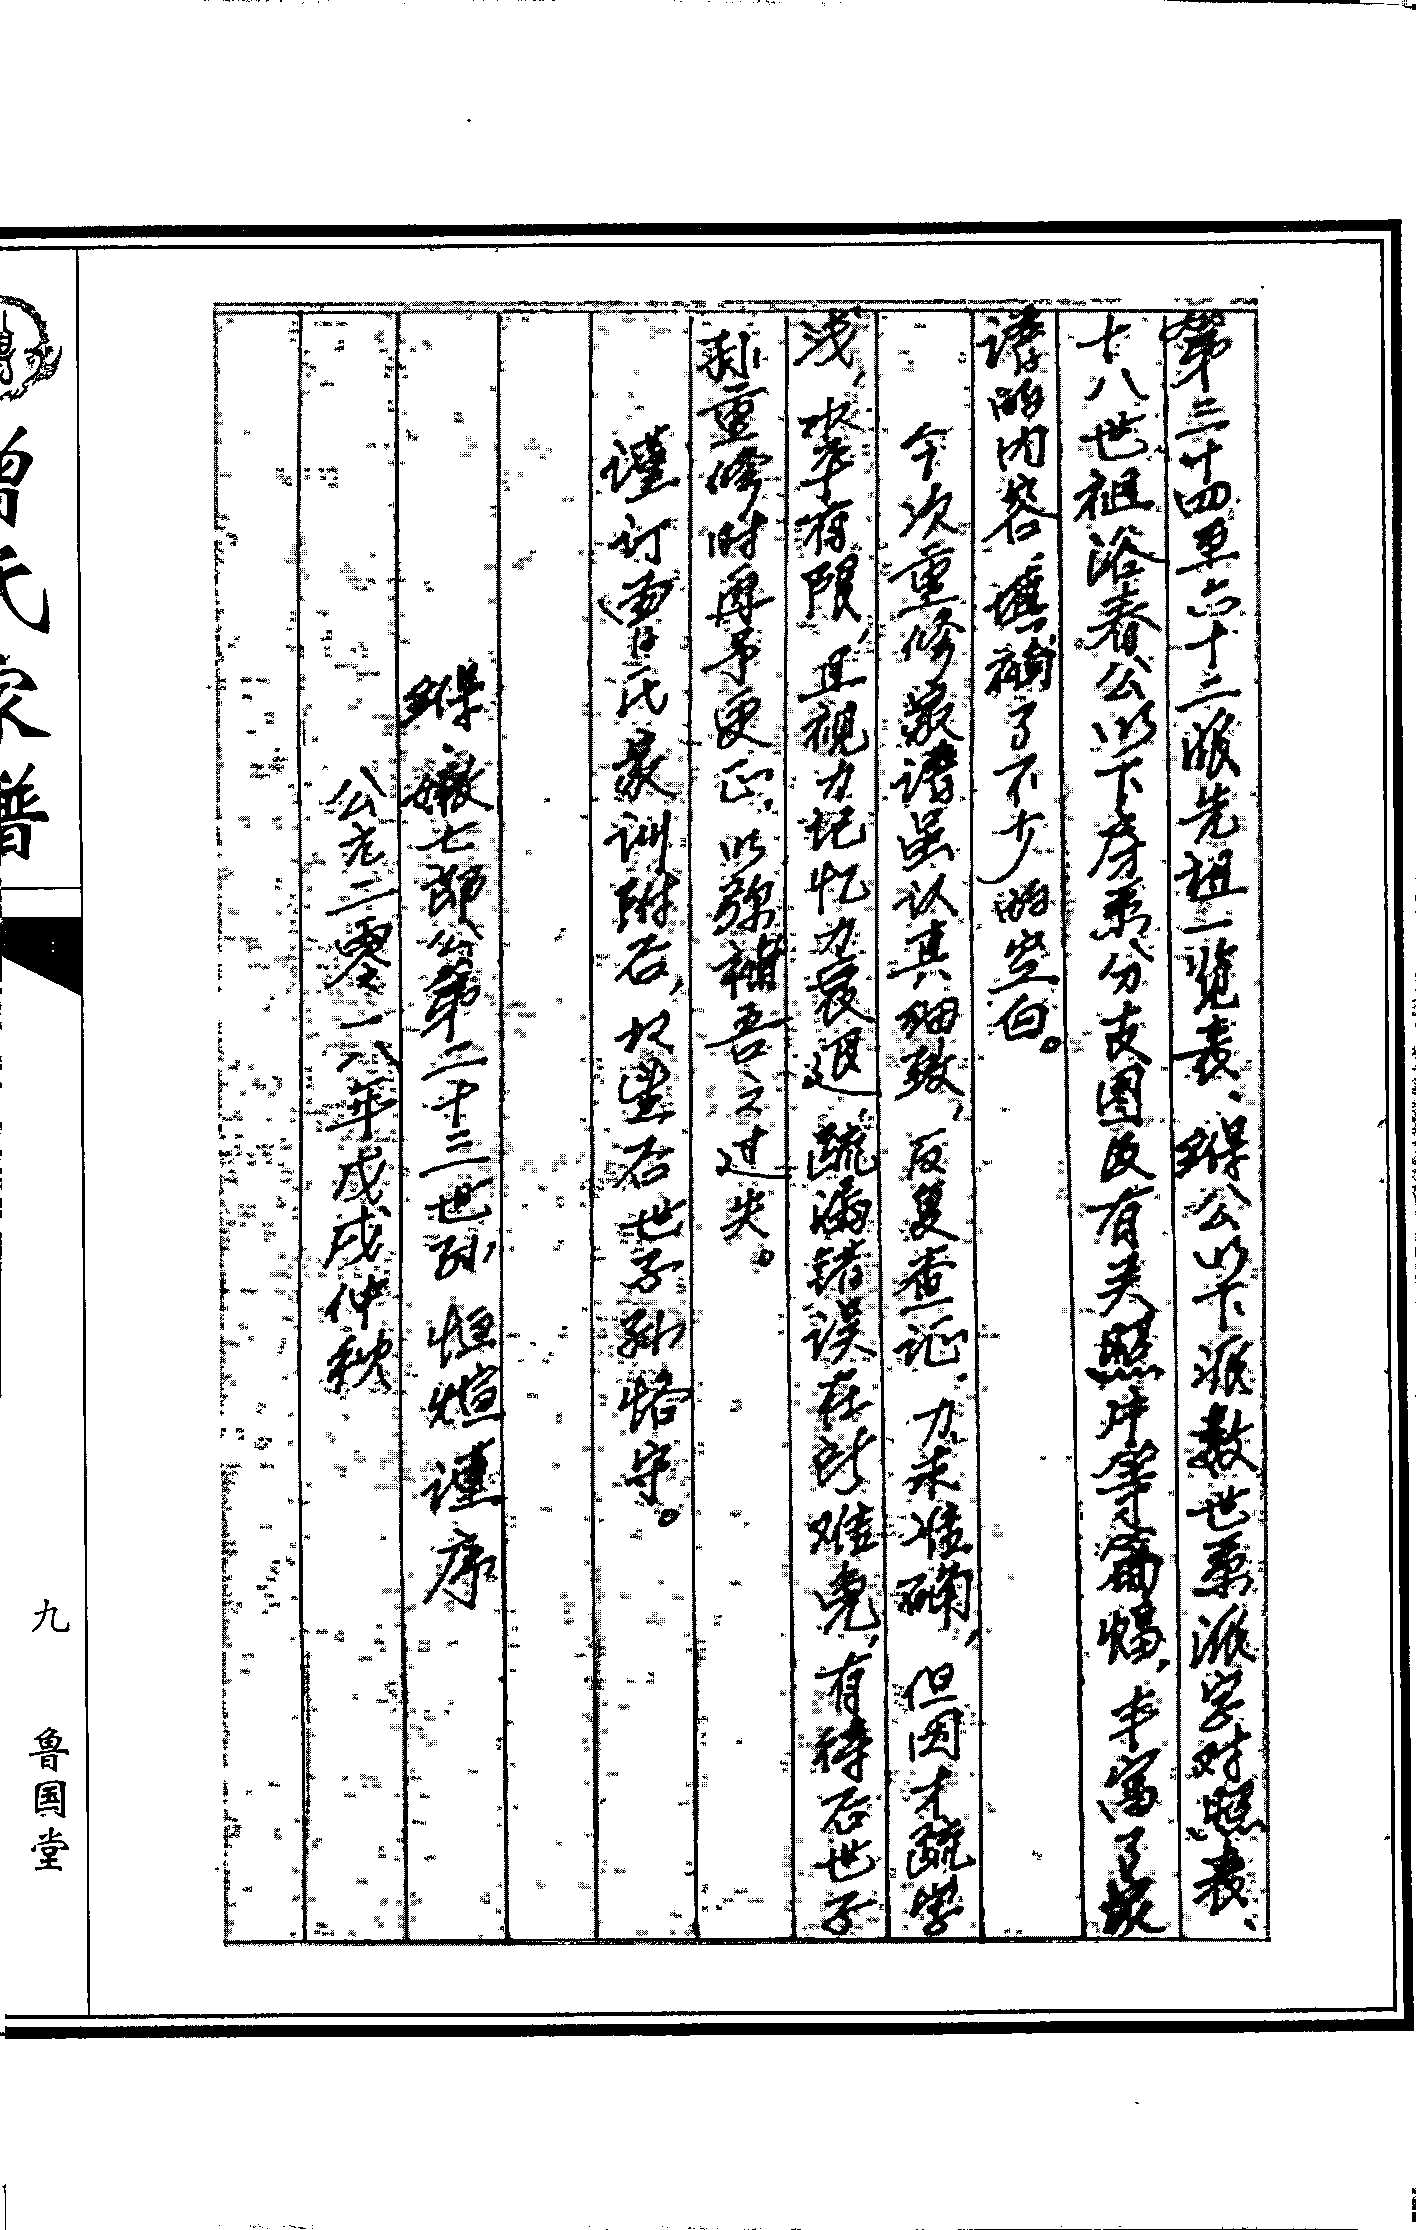 第三十四至六十二派先祖一览表、鍭公以下派数世系派字对照表、
十八世祖浴春公以下房系分支图及有关照片等篇幅，丰富了家
谱的内容、填补了不少的空白。
今次重修家谱虽认真细致，反复查证，力求准确，但因才疏学
浅，水平有限，且视力记忆力衰退，疏漏错误在所难免，有待后世子
孙重修时再予更正，以弥补吾之过失。
谨订曾氏家训附后，切望后世子孙恪守。
七郎公第二十三世孙，恒煊谨序
公元二零一八年戊戌仲秋
曾氏家谱
九
鲁国堂